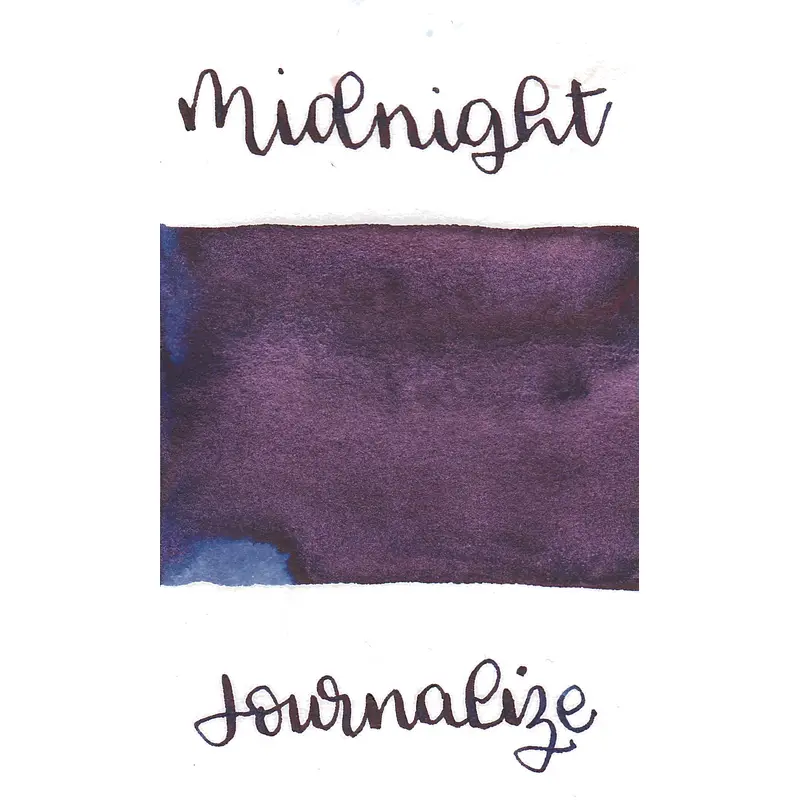 Midnight
Journalize